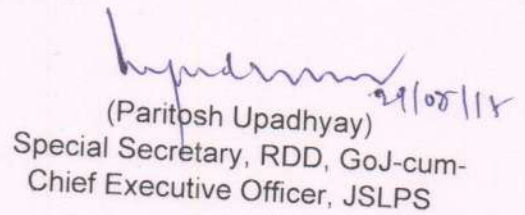 29/08/18
(Paritosh Upadhyay)
Special Secretary, RDD, GoJ-cum-
Chief Executive Officer, JSLPS